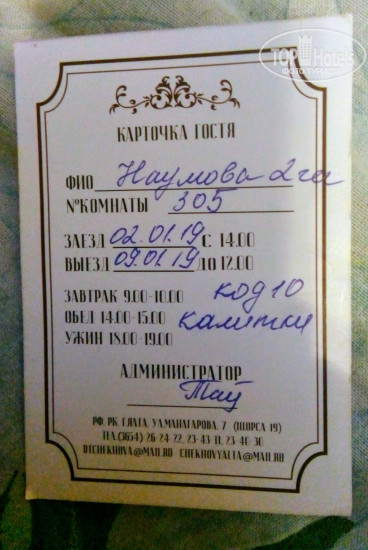 TOP Hotels
КАРТОЧКА ГОСТЯ
ФИО Наумова 2 чел
№КОМНАТЫ 305
ЗАЕЗД 02.01.19 С 14.00
ВЫЕЗД 09.01.19 ДО 12.00
ЗАВТРАК 9.00-10.00 код 10
ОБЕД 14.00-15.00 калитки
УЖИН 18.00-19.00
АДМИНИСТРАТОР
РФ, РК, Г.ЯЛТА, УЛ.МАНАГАРОВА, 7 (ЩОРСА 19)
ТЕЛ.(3654) 26-24-22, 23-43-11, 23-40-30
DTCHEKHOVA@MAIL.RU CHEKHOVYALTA@MAIL.RU